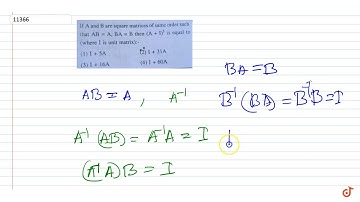 11366
If A and B are square matrices of same order such
that AB = A, BA = B then (A + I)⁵ is equal to
(where I is unit matrix):-
(1) I + 5A (2) I + 31A
(3) I + 16A (4) I + 60A
BA = B
AB = A , A⁻¹
B⁻¹ (BA) = B⁻¹B = I
A⁻¹ (AB) = A⁻¹A = I
(A⁻¹A) B = I